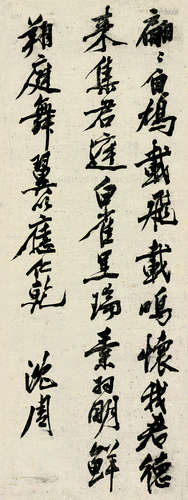 翩〻白鳩載飛載鳴懷我君德
来集君庭白雀呈瑞素羽明鮮
翔庭舞翼以應仁乾 沈周